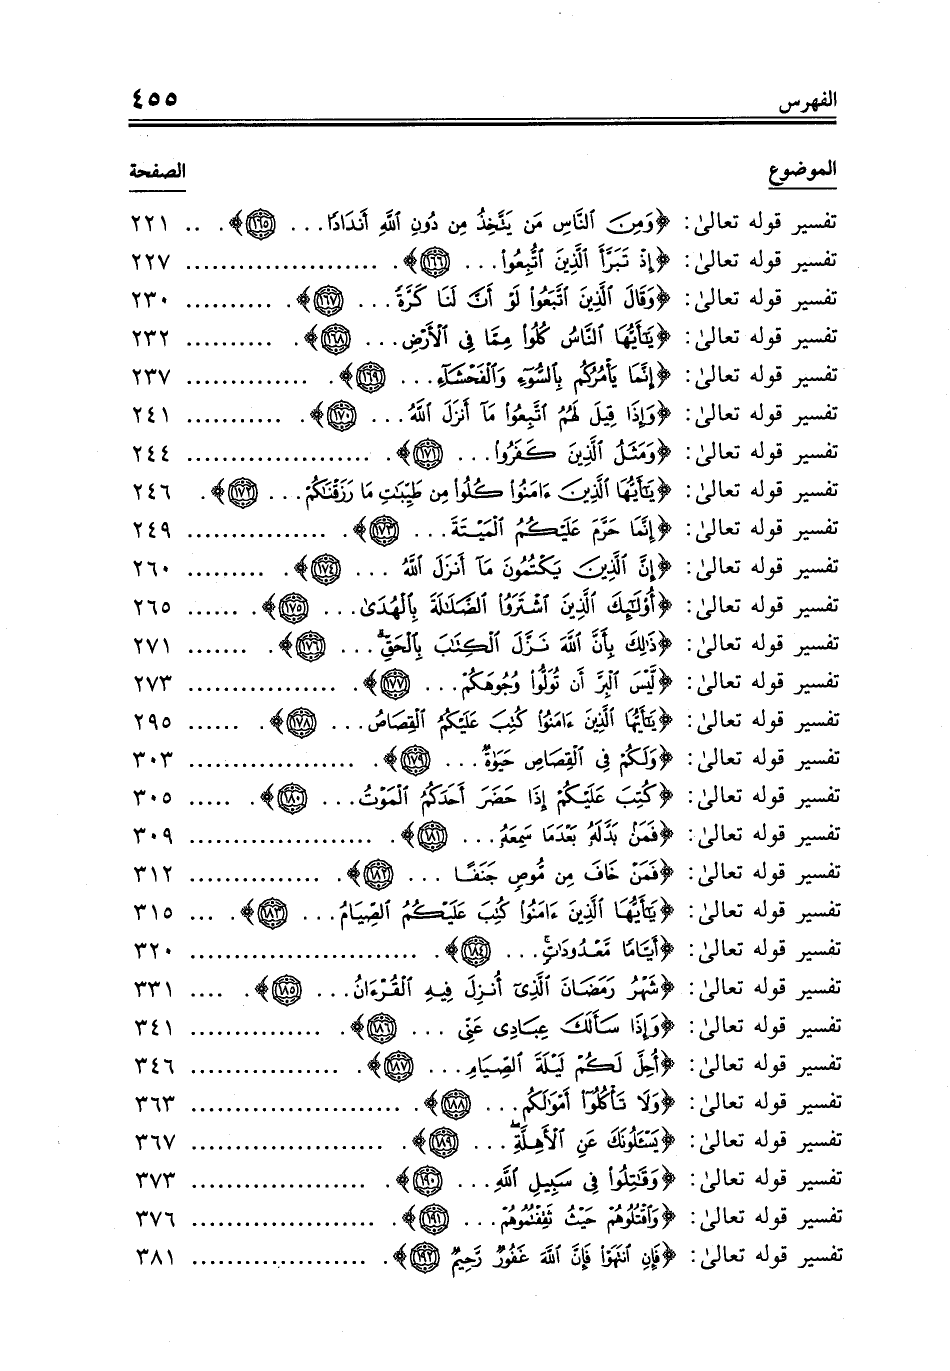 الفهرس ٤٥٥
الموضوع الصفحة
تفسير قوله تعالىٰ: ﴿وَمِنَ ٱلنَّاسِ مَن يَتَّخِذُ مِن دُونِ ٱللَّهِ أَندَادًا... ١٦٥﴾. .. ٢٢١
تفسير قوله تعالىٰ: ﴿إِذْ تَبَرَّأَ ٱلَّذِينَ ٱتُّبِعُوا۟... ١٦٦﴾. ..................... ٢٢٧
تفسير قوله تعالىٰ: ﴿وَقَالَ ٱلَّذِينَ ٱتَّبَعُوا۟ لَوْ أَنَّ لَنَا كَرَّةً... ١٦٧﴾. .......... ٢٣٠
تفسير قوله تعالىٰ: ﴿يَـٰٓأَيُّهَا ٱلنَّاسُ كُلُوا۟ مِمَّا فِى ٱلْأَرْضِ... ١٦٨﴾. .......... ٢٣٢
تفسير قوله تعالىٰ: ﴿إِنَّمَا يَأْمُرُكُم بِٱلسُّوٓءِ وَٱلْفَحْشَآءِ... ١٦٩﴾. .............. ٢٣٧
تفسير قوله تعالىٰ: ﴿وَإِذَا قِيلَ لَهُمُ ٱتَّبِعُوا۟ مَآ أَنزَلَ ٱللَّهُ... ١٧٠﴾. ........... ٢٤١
تفسير قوله تعالىٰ: ﴿وَمَثَلُ ٱلَّذِينَ كَفَرُوا۟... ١٧١﴾. .................... ٢٤٤
تفسير قوله تعالىٰ: ﴿يَـٰٓأَيُّهَا ٱلَّذِينَ ءَامَنُوا۟ كُلُوا۟ مِن طَيِّبَـٰتِ مَا رَزَقْنَـٰكُمْ... ١٧٢﴾. ٢٤٦
تفسير قوله تعالىٰ: ﴿إِنَّمَا حَرَّمَ عَلَيْكُمُ ٱلْمَيْتَةَ... ١٧٣﴾. ................ ٢٤٩
تفسير قوله تعالىٰ: ﴿إِنَّ ٱلَّذِينَ يَكْتُمُونَ مَآ أَنزَلَ ٱللَّهُ... ١٧٤﴾. ......... ٢٦٠
تفسير قوله تعالىٰ: ﴿أُو۟لَـٰٓئِكَ ٱلَّذِينَ ٱشْتَرَوُا۟ ٱلضَّلَـٰلَةَ بِٱلْهُدَىٰ... ١٧٥﴾. ...... ٢٦٥
تفسير قوله تعالىٰ: ﴿ذَٰلِكَ بِأَنَّ ٱللَّهَ نَزَّلَ ٱلْكِتَـٰبَ بِٱلْحَقِّ ۗ... ١٧٦﴾. ....... ٢٧١
تفسير قوله تعالىٰ: ﴿لَّيْسَ ٱلْبِرَّ أَن تُوَلُّوا۟ وُجُوهَكُمْ... ١٧٧﴾. ................. ٢٧٣
تفسير قوله تعالىٰ: ﴿يَـٰٓأَيُّهَا ٱلَّذِينَ ءَامَنُوا۟ كُتِبَ عَلَيْكُمُ ٱلْقِصَاصُ... ١٧٨﴾. ...... ٢٩٥
تفسير قوله تعالىٰ: ﴿وَلَكُمْ فِى ٱلْقِصَاصِ حَيَوٰةٌ... ١٧٩﴾. ................... ٣٠٣
تفسير قوله تعالىٰ: ﴿كُتِبَ عَلَيْكُمْ إِذَا حَضَرَ أَحَدَكُمُ ٱلْمَوْتُ... ١٨٠﴾. ..... ٣٠٥
تفسير قوله تعالىٰ: ﴿فَمَنۢ بَدَّلَهُۥ بَعْدَمَا سَمِعَهُۥ... ١٨١﴾. .................... ٣٠٩
تفسير قوله تعالىٰ: ﴿فَمَنْ خَافَ مِن مُّوصٍ جَنَفًا... ١٨٢﴾. ............... ٣١٢
تفسير قوله تعالىٰ: ﴿يَـٰٓأَيُّهَا ٱلَّذِينَ ءَامَنُوا۟ كُتِبَ عَلَيْكُمُ ٱلصِّيَامُ... ١٨٣﴾. ... ٣١٥
تفسير قوله تعالىٰ: ﴿أَيَّامًا مَّعْدُودَٰتٍ ۚ... ١٨٤﴾. ......................... ٣٢٠
تفسير قوله تعالىٰ: ﴿شَهْرُ رَمَضَانَ ٱلَّذِىٓ أُنزِلَ فِيهِ ٱلْقُرْءَانُ... ١٨٥﴾. .... ٣٣١
تفسير قوله تعالىٰ: ﴿وَإِذَا سَأَلَكَ عِبَادِى عَنِّى... ١٨٦﴾. ............... ٣٤١
تفسير قوله تعالىٰ: ﴿أُحِلَّ لَكُمْ لَيْلَةَ ٱلصِّيَامِ... ١٨٧﴾. ................. ٣٤٦
تفسير قوله تعالىٰ: ﴿وَلَا تَأْكُلُوٓا۟ أَمْوَٰلَكُم... ١٨٨﴾. ....................... ٣٦٣
تفسير قوله تعالىٰ: ﴿يَسْـَٔلُونَكَ عَنِ ٱلْأَهِلَّةِ ۖ... ١٨٩﴾. ..................... ٣٦٧
تفسير قوله تعالىٰ: ﴿وَقَـٰتِلُوا۟ فِى سَبِيلِ ٱللَّهِ... ١٩٠﴾. ................... ٣٧٣
تفسير قوله تعالىٰ: ﴿وَٱقْتُلُوهُمْ حَيْثُ ثَقِفْتُمُوهُمْ... ١٩١﴾. .................... ٣٧٦
تفسير قوله تعالىٰ: ﴿فَإِنِ ٱنتَهَوْا۟ فَإِنَّ ٱللَّهَ غَفُورٌ رَّحِيمٌ ١٩٢﴾. ................... ٣٨١